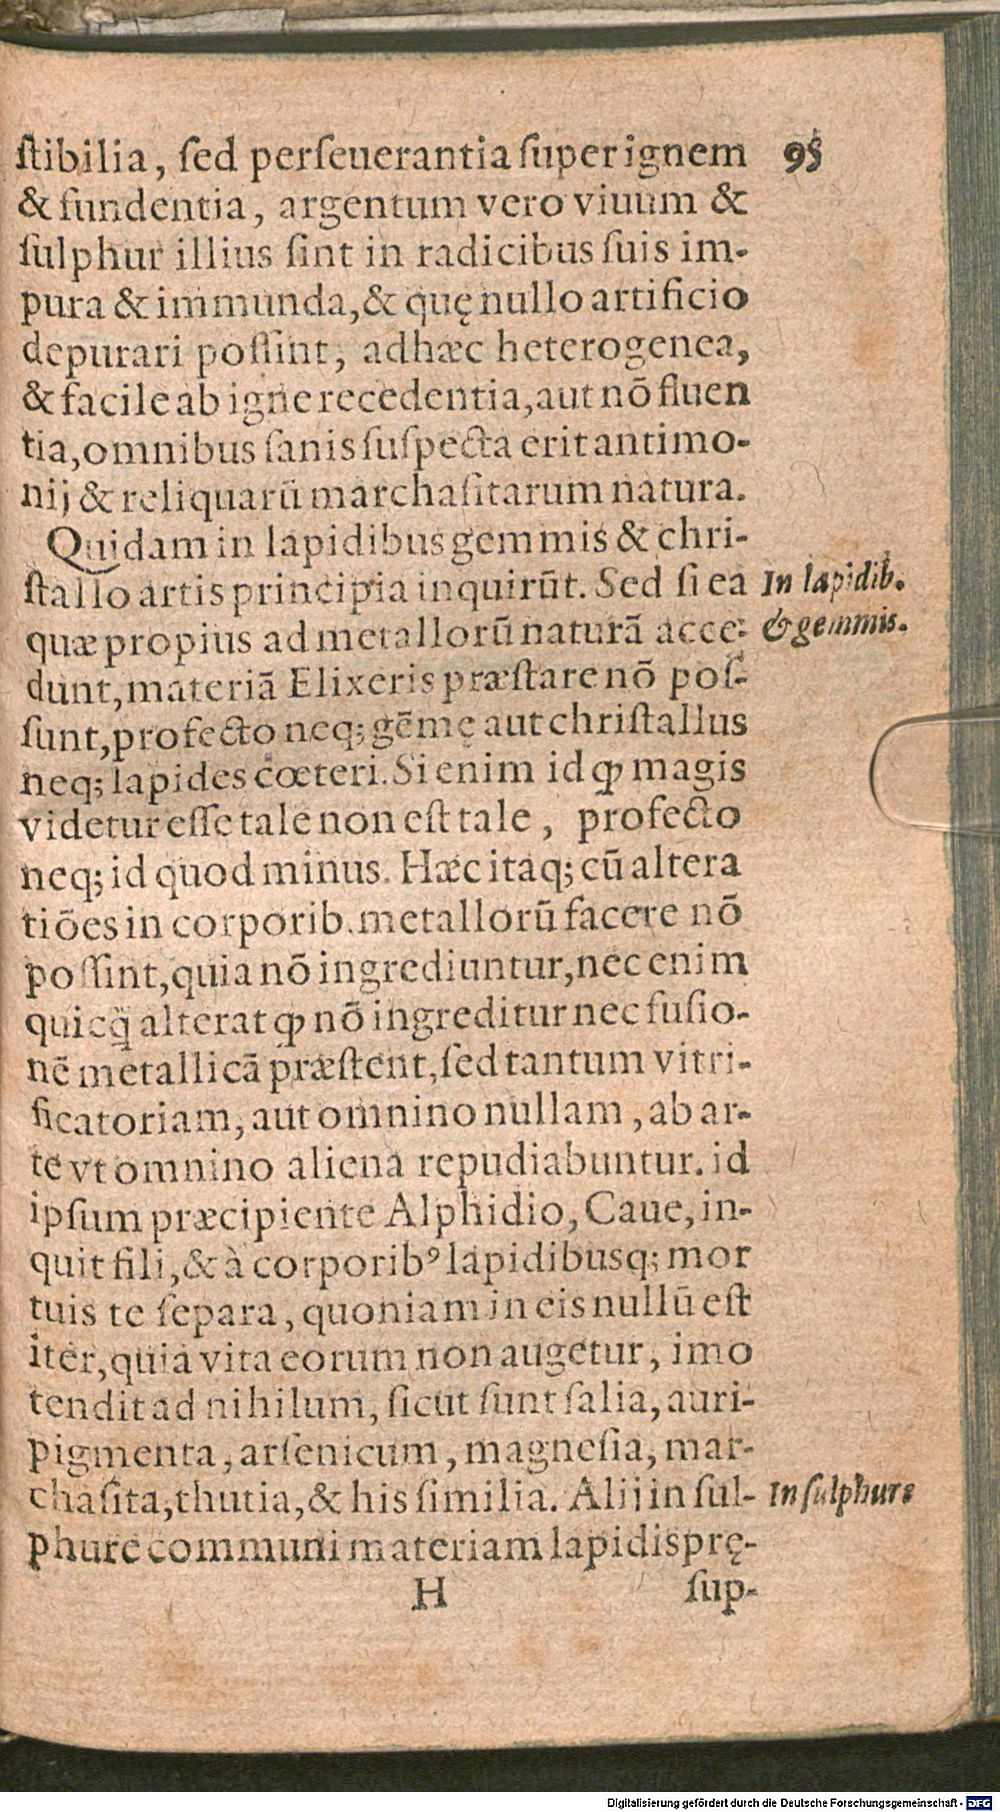 ſtibilia, ſed perſeuerantia ſuper ignem 95
& fundentia, argentum vero viuum &
ſulphur illius ſint in radicibus ſuis im-
pura & immunda, & quę nullo artificio
depurari poſſint, adhæc heterogenea,
& facile ab igne recedentia, aut nō fluen
tia, omnibus ſanis ſuſpecta erit antimo-
nij & reliquarū marchaſitarum natura.
Quidam in lapidibus gemmis & chri-
ſtallo artis principia inquirūt. Sed ſi ea In lapidib.
quæ propius ad metallorū naturā acce- & gemmis.
dunt, materiā Elixeris præſtare nō poſ-
ſunt, profecto neq; gēmę aut chriſtallus
neq; lapides cœteri. Si enim id ꝙ magis
videtur eſſe tale non eſt tale, profecto
neq; id quod minus. Hæc itaq; cū altera
tiōes in corporib. metallorū facere nō
poſſint, quia nō ingrediuntur, nec enim
quicq̃ alterat ꝙ nō ingreditur nec fuſio-
nē metallicā præſtent, ſed tantum vitri-
ficatoriam, aut omnino nullam, ab ar-
te vt omnino aliena repudiabuntur. id
ipſum præcipiente Alphidio, Caue, in-
quit fili, & à corporibꝰ lapidibusq; mor
tuis te ſepara, quoniam in eis nullū eſt
iter, quia vita eorum non augetur, imo
tendit ad nihilum, ſicut ſunt ſalia, auri-
pigmenta, arſenicum, magneſia, mar-
chaſita, thutia, & his ſimilia. Alij in ſul- In ſulphure
phure communi materiam lapidis prę-
H ſup-
Digitalisierung gefördert durch die Deutsche Forschungsgemeinschaft - DFG